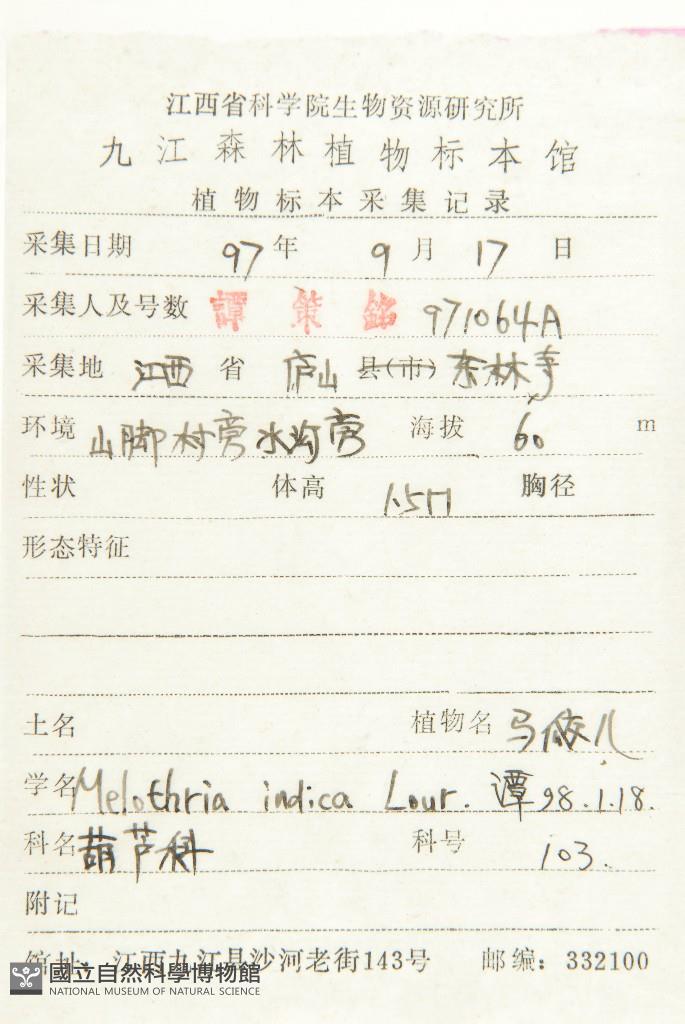 江西省科学院生物资源研究所
九江森林植物标本馆
植物标本采集记录
采集日期 97年 9月 17日
采集人及号数 譚策銘 971064A
采集地 江西省 庐山县(市) 东林寺
环境 山脚村旁水沟旁 海拔 60 m
性状 体高 1.5m 胸径
形态特征
土名 植物名 马㼎儿
学名 Melothria indica Lour. 谭 98.1.18.
科名 葫芦科 科号 103.
附记
馆址：江西九江县沙河老街143号 邮编：332100
國立自然科學博物館
NATIONAL MUSEUM OF NATURAL SCIENCE